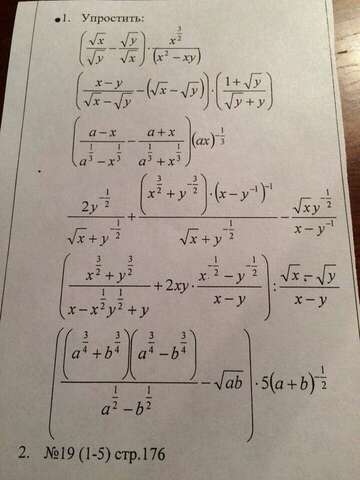 ●1. Упростить:
(√x/√y − √y/√x) · x^(3/2)/(x² − xy)
((x − y)/(√x − √y) − (√x − √y)) · ((1 + √y)/(√y + y))
((a − x)/(a^(1/3) − x^(1/3)) − (a + x)/(a^(1/3) + x^(1/3))) (ax)^(−1/3)
2y^(−1/2)/(√x + y^(−1/2)) + (x^(3/2) + y^(−3/2)) · (x − y^(−1))^(−1)/(√x + y^(−1/2)) − √x y^(−1/2)/(x − y^(−1))
((x^(3/2) + y^(3/2))/(x − x^(1/2)y^(1/2) + y) + 2xy · (x^(−1/2) − y^(−1/2))/(x − y)) : (√x − √y)/(x − y)
((a^(3/4) + b^(3/4))(a^(3/4) − b^(3/4))/(a^(1/2) − b^(1/2)) − √ab) · 5(a + b)^(−1/2)
2. №19 (1-5) стр.176